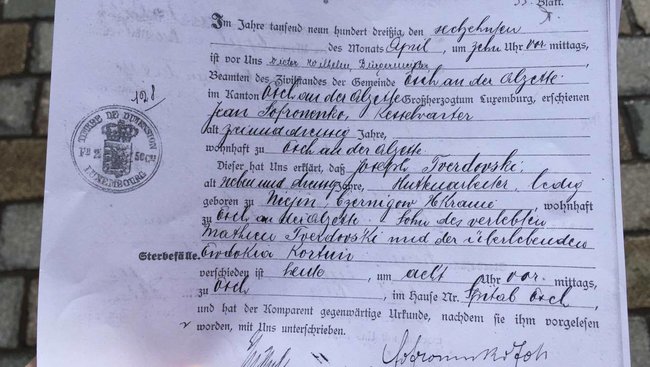 55. Blatt.
Im Jahre tausend neun hundert dreißig, den sechzehnten
des Monats April, um zehn Uhr vormittags,
ist vor Uns Wilhelm Bürgermeister
Beamten des Zivilstandes der Gemeinde Esch an der Alzette
im Kanton Esch an der Alzette Großherzogtum Luxemburg, erschienen
Jean Sofronenko, Kesselwärter
alt zweiunddreissig Jahre,
wohnhaft zu Esch an der Alzette
Dieser hat Uns erklärt, daß Joseph Tverdovski,
alt sieben und dreissig Jahre, Hüttenarbeiter, ledig
geboren zu Nejin, Czernigow Ukraine, wohnhaft
zu Esch an der Alzette. Sohn des verlebten
Mathieu Tverdovski und der überlebenden
Sterbefälle. Evdokia
verschieden ist heute, um acht Uhr vormittags,
zu Esch, im Hause Nr. Spital Esch
und hat der Komparent gegenwärtige Urkunde, nachdem sie ihm vorgelesen
worden, mit Uns unterschrieben.
128
TIMBRE DE DIMENSION
LUXEMBOURG